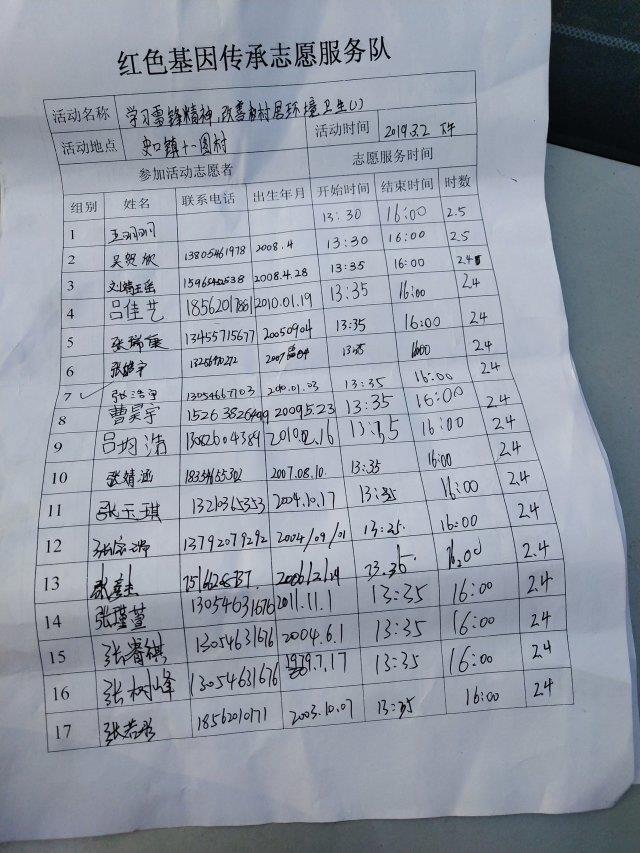 红色基因传承志愿服务队
活动名称 学习雷锋精神,改善农村居环境卫生(1) 活动时间 2019.3.2 下午
活动地点 史口镇十一图村
参加活动志愿者 志愿服务时间
组别 姓名 联系电话 出生年月 开始时间 结束时间 时数
1 13:30 16:00 2.5
2 吴贺欣 13805461978 2008.4 13:30 16:00 2.5
3 2008.4.28 13:35 16:00 2.4
4 吕佳艺 2010.01.19 13:35 16:00 2.4
5 张瑞重 13455715677 20050904 13:35 16:00 2.4
6 13:35 16:00 2.4
7 张浩宇 13054667703 13:35 16:00 2.4
8 曹昊宇 20095.23 13:35 16:00 2.4
9 吕均浩 13082604389 13:35 16:00 2.4
10 张婧涵 2007.08.10. 13:35 16:00 2.4
11 张玉琪 13210365353 2004.10.17 13:35 16:00 2.4
12 13792079292 2004/09/01 13:35. 16:00 2.4
13 13.36. 2.4
14 张瑾萱 13054631676 2011.11.1 13:35 16:00 2.4
15 张睿祺 13054631676 2004.6.1 13:35 16:00 2.4
16 张树峰 13054631676 1979.7.17 13:35 16:00 2.4
17 18562010171 2003.10.07 13:35 16:00 2.4